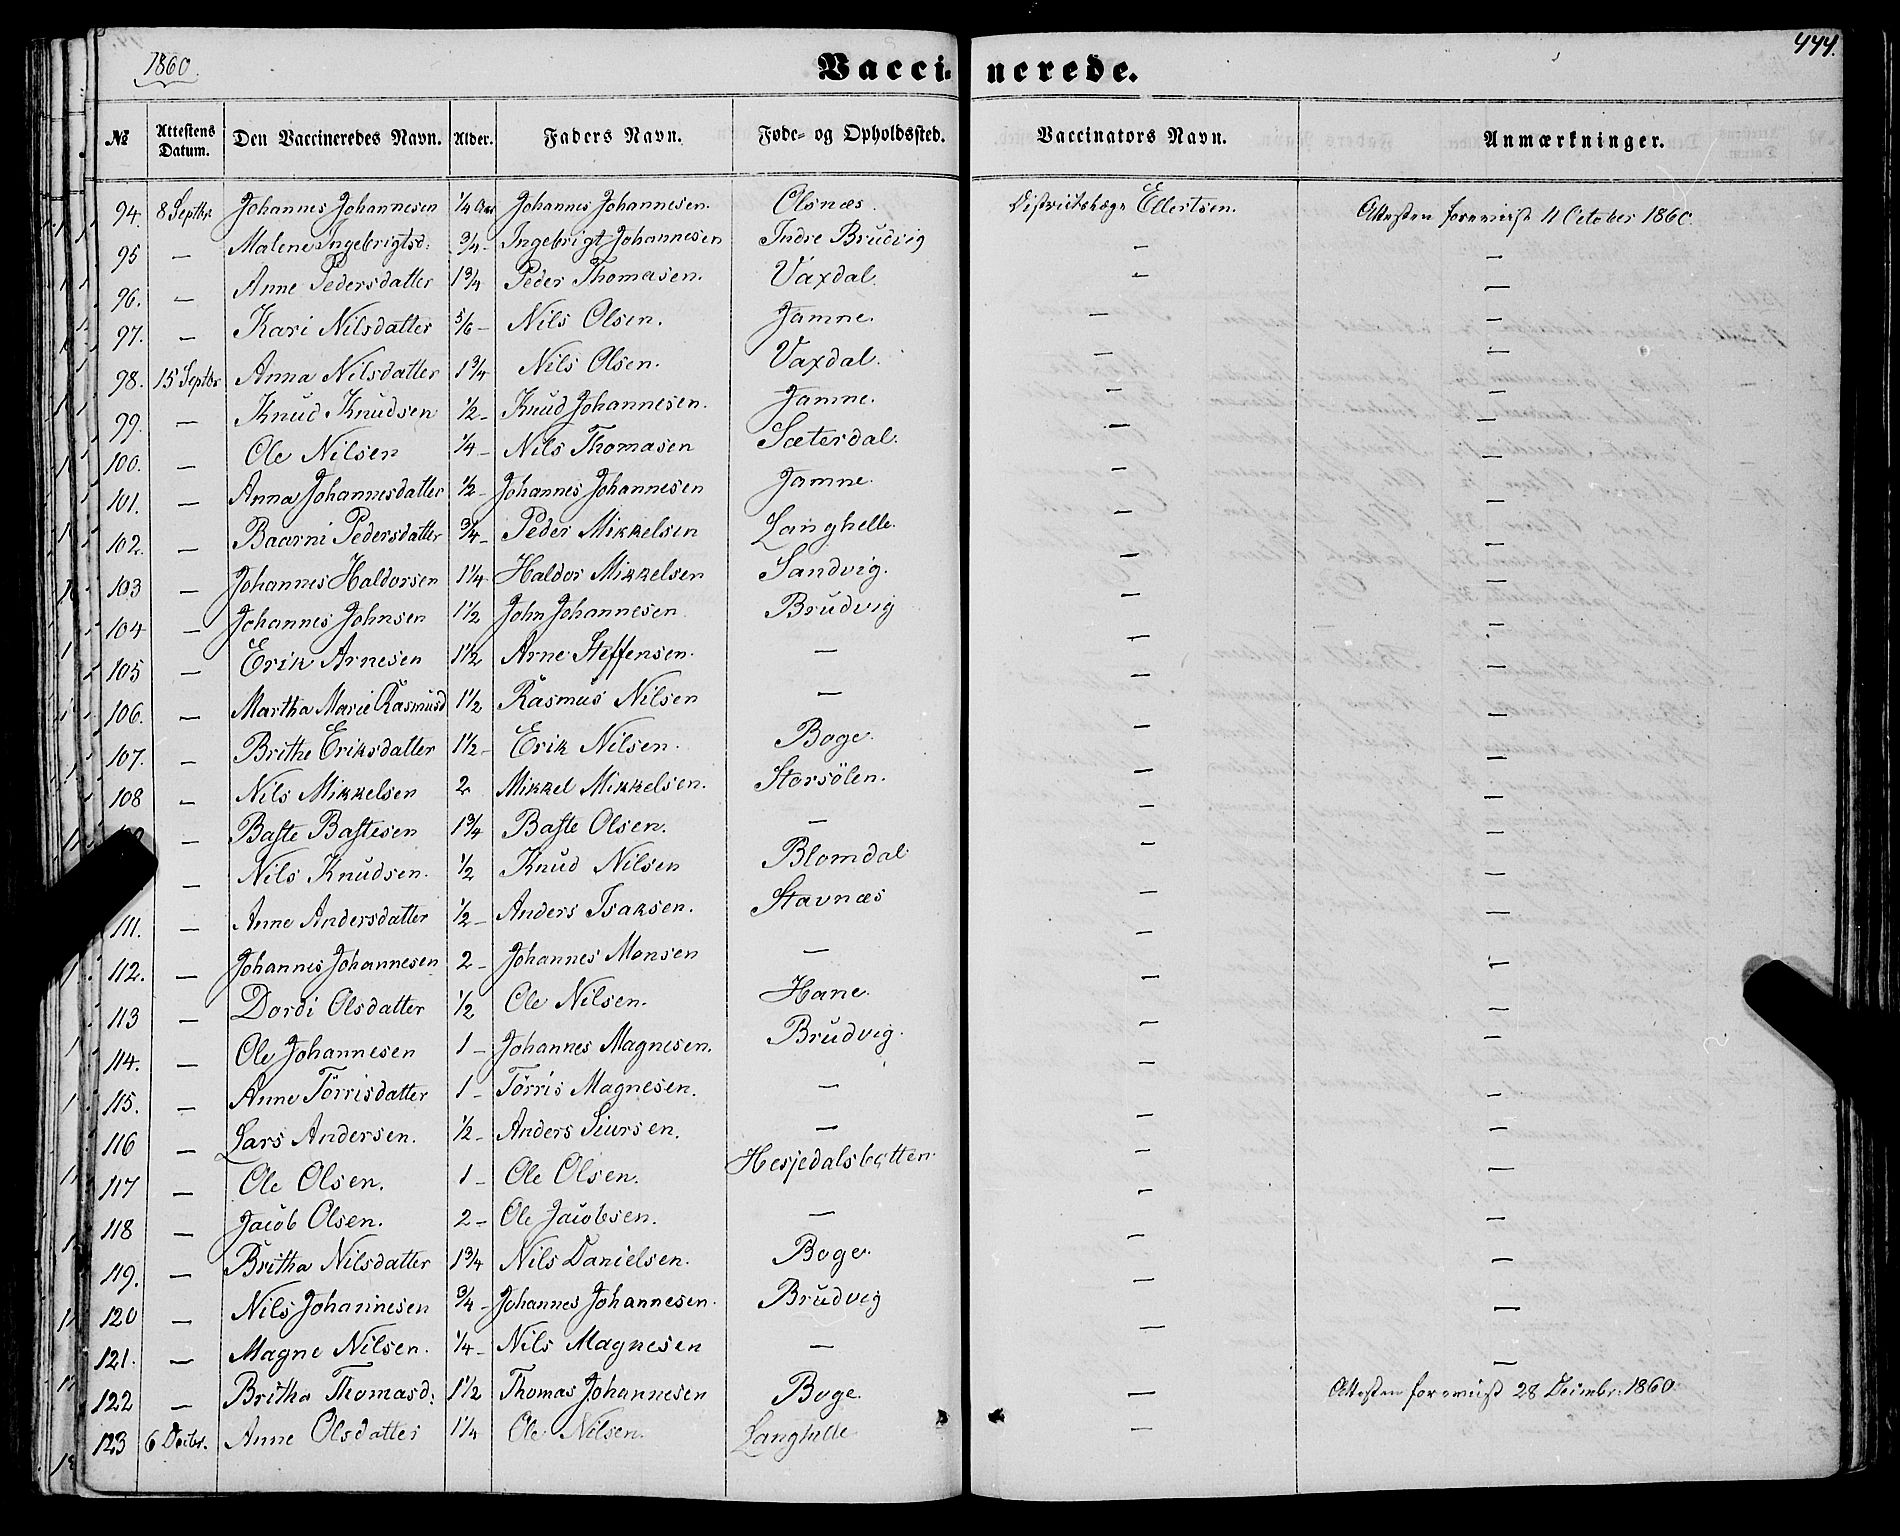 444.
1860.
Vaccinerede.
№ Attestens Datum. Den Vaccineredes Navn. Alder. Faders Navn. Føde- og Opholdssted. Vaccinators Navn. Anmærkninger.
94. 8 Septbr Johannes Johannesen 1/4 Aar Johannes Johannesen. Olsnæs. Districtslæge Ellertsen. Attesten foreviist 11 October 1860.
95 — Malene Ingebrigtsd: 3/4 - Ingebrigt Johannesen Indre Brudvig — —
96. — Anne Pedersdatter 1 3/4 Peder Thomasen. Vaxdal. — —
97. — Kari Nilsdatter 5/6 - Nils Olsen. Jamne. — —
98. 15 Septbr Anna Nilsdatter 1 3/4 Nils Olsen. Vaxdal. — —
99. — Knud Knudsen 1/2 - Knud Johannesen. Jamne. — —
100. — Ole Nilsen 1/4 - Nils Thomasen Sæterdal. — —
101. — Anna Johannesdatter 1/2 - Johannes Johannesen Jamne. — —
102. — Baarni Pedersdatter 3/4 - Peder Mikkelsen Langhelle. — —
103 — Johannes Haldorsen 1 1/4 Haldor Mikkelsen Sandvig. — —
104 — Johannes Johnsen 1 1/2 John Johannesen Brudvig — —
105 — Erik Arnesen 1 1/2 Arne Steffensen. — — —
106. — Martha Marie Rasmusd 1 1/2 Rasmus Nilsen — — —
107. — Brithe Eriksdatter 1 1/2 - Erik Nilsen. Boge. — —
108 — Nils Mikkelsen 2 Mikkel Mikkelsen. Storsölen. — —
— Baste Bastesen 1 3/4 Baste Olsen. — — —
— Nils Knudsen. 1/2 Knud Nilsen Blomdal — —
111. — Anne Andersdatter 1/2 - Anders Isaksen. Stavnæs — —
112. — Johannes Johannesen 2 - Johannes Monsen — — —
113 — Dordi Olsdatter 1/2 Ole Nilsen. Hane. — —
114. — Ole Johannesen 1 - Johannes Magnesen. Brudvig. — —
115. — Anne Törrisdatter 1 - Törris Magnesen. — — —
116 — Lars Andersen. 1/2 - Anders Siursen. — — —
117 — Ole Olsen. 1 - Ole Olsen. Hesjedalsbotten. — —
118 — Jacob Olsen. 2 - Ole Jacobsen. — — —
119. — Britha Nilsdatter 1 3/4 Nils Danielsen. Boge. — —
120 — Nils Johannesen 3/4 - Johannes Johannesen. Brudvig — —
121. — Magne Nilsen. 1/4 - Nils Magnesen — — —
122 — Britha Thomasd: 1 1/2 Thomas Johannesen Boge — Attesten foreviist 28 Decembr. 1860.
123 6 Decbr. Anne Olsdatter 1 1/4 Ole Nilsen. Langhelle —